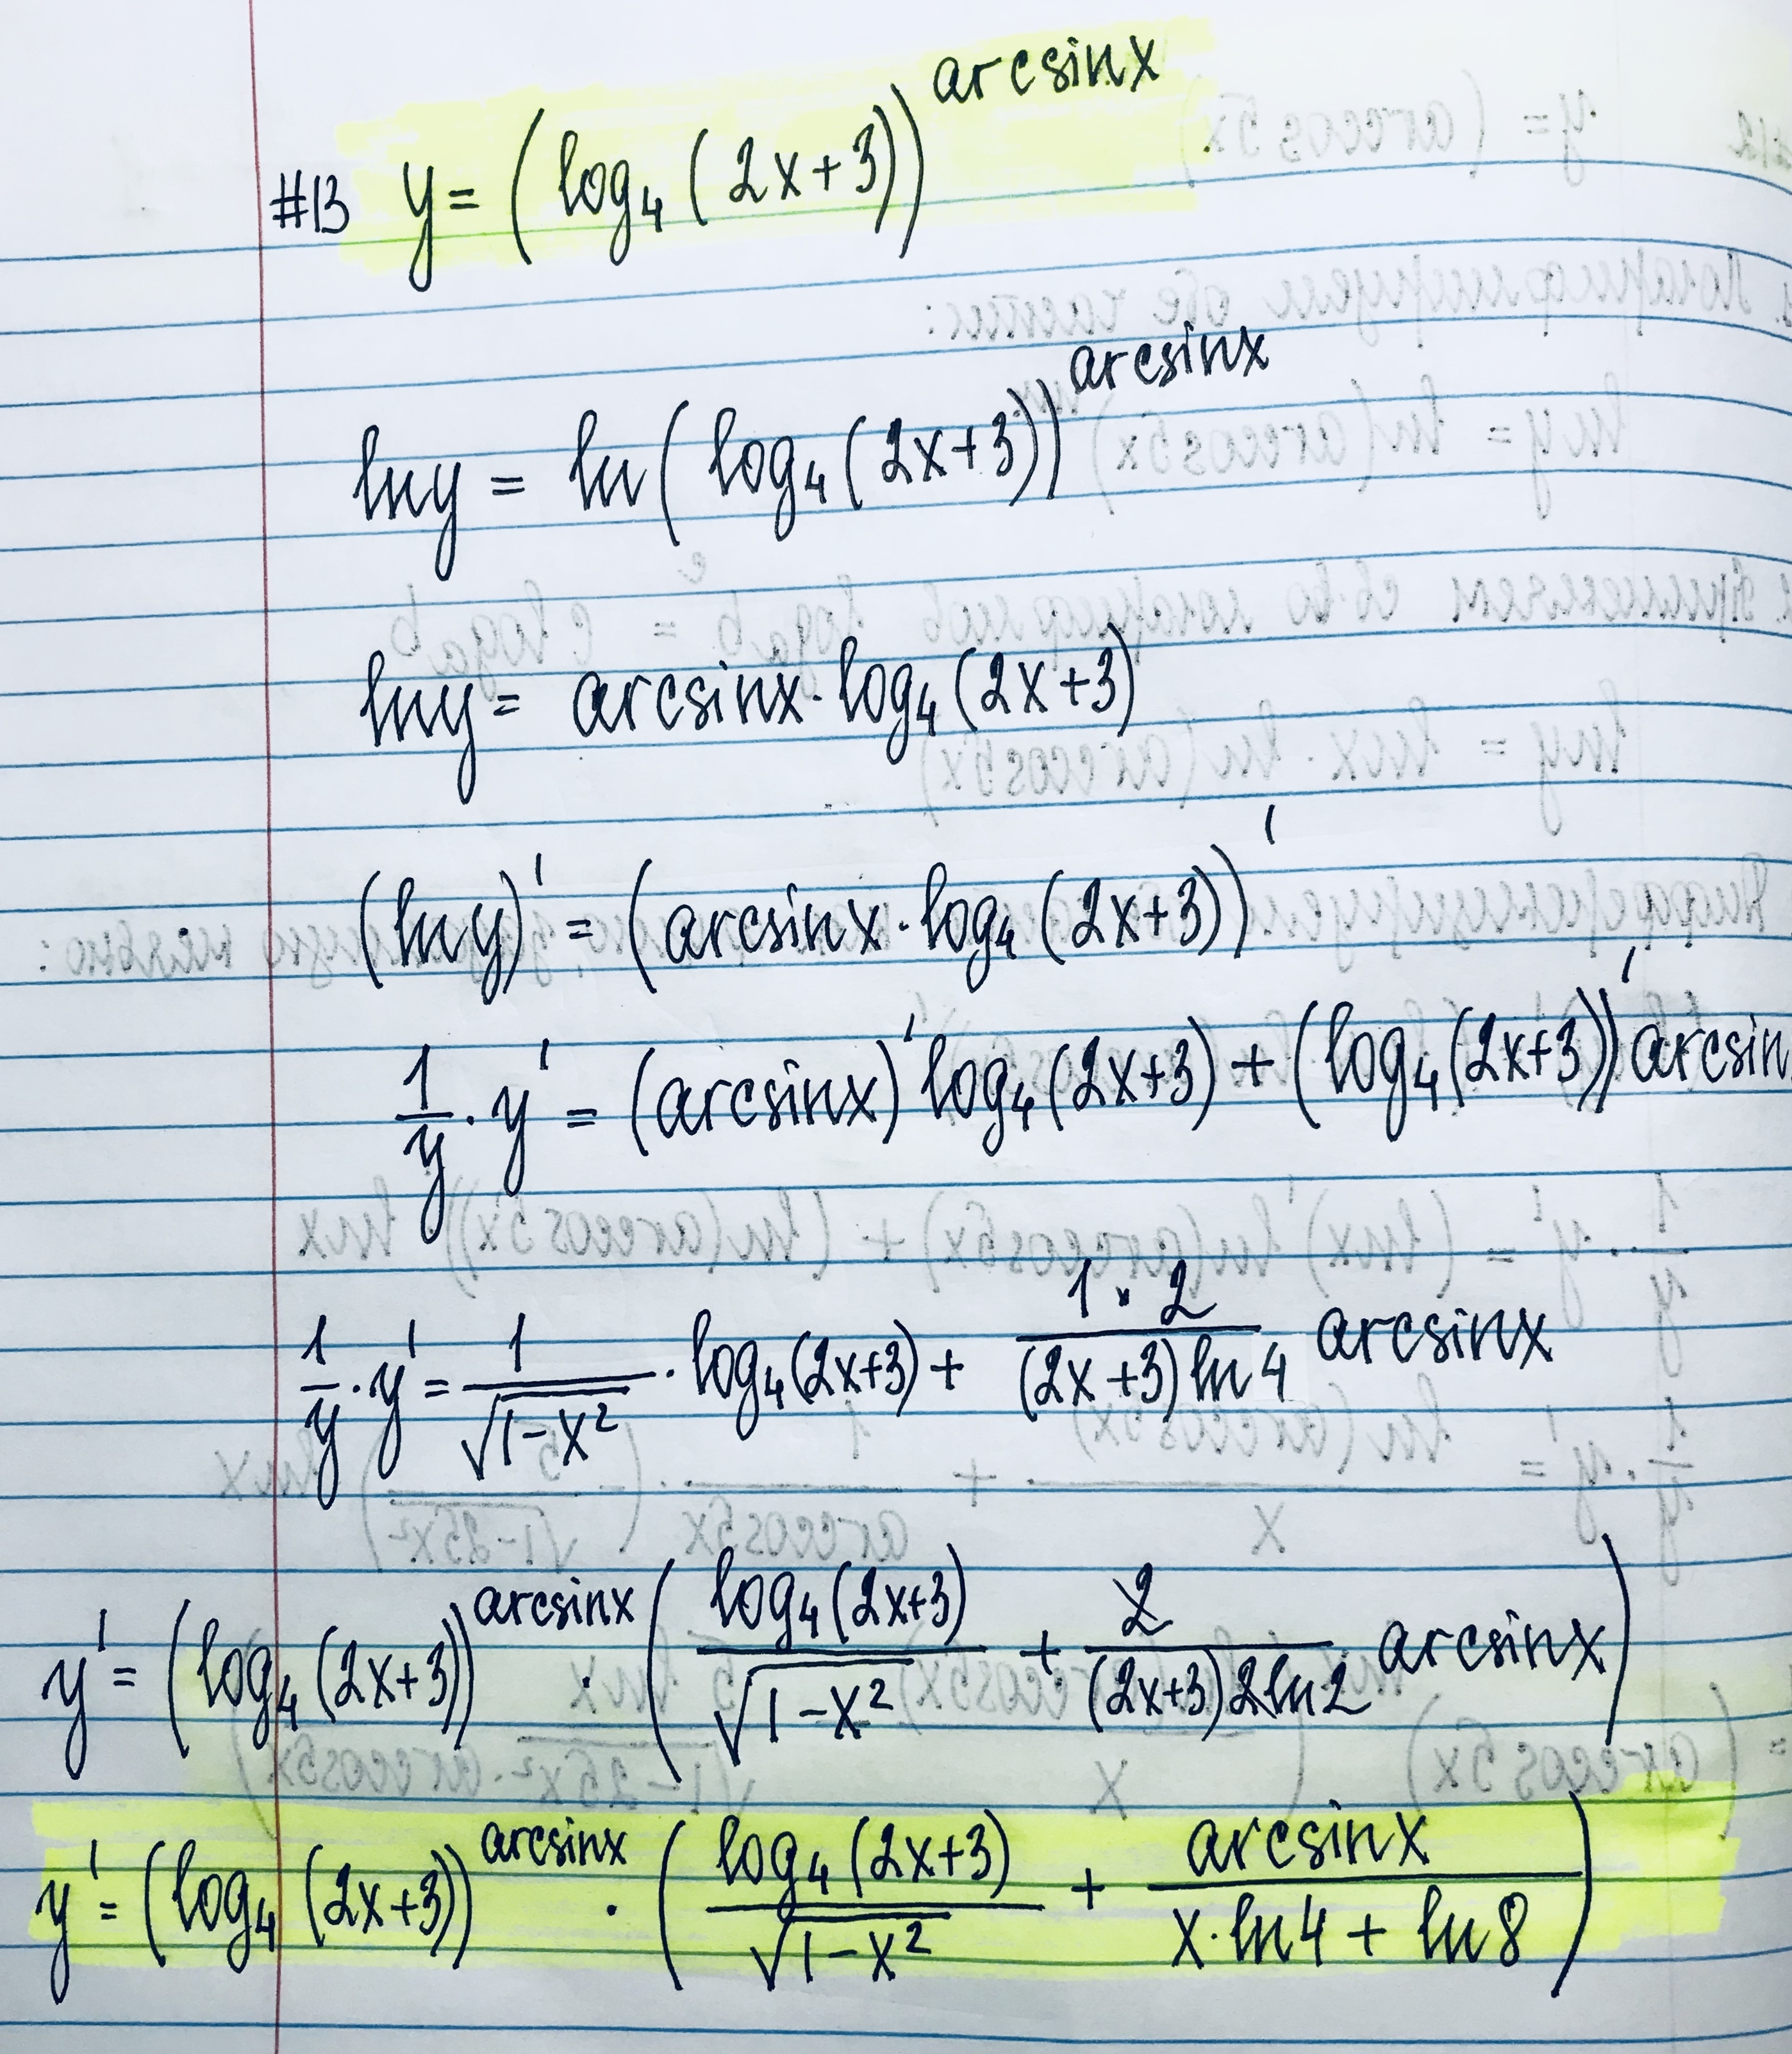 #13 y = (log₄(2x+3))^arcsinx
lny = ln(log₄(2x+3))^arcsinx
lny = arcsinx · log₄(2x+3)
(lny)' = (arcsinx · log₄(2x+3))'
1/y · y' = (arcsinx)' log₄(2x+3) + (log₄(2x+3))' arcsin
1/y · y' = 1/√(1-x²) · log₄(2x+3) + (1·2)/((2x+3)ln4) arcsinx
y' = (log₄(2x+3))^arcsinx · (log₄(2x+3)/√(1-x²) + 2/((2x+3)2ln2) arcsinx)
y' = (log₄(2x+3))^arcsinx · (log₄(2x+3)/√(1-x²) + arcsinx/(x·ln4 + ln8))